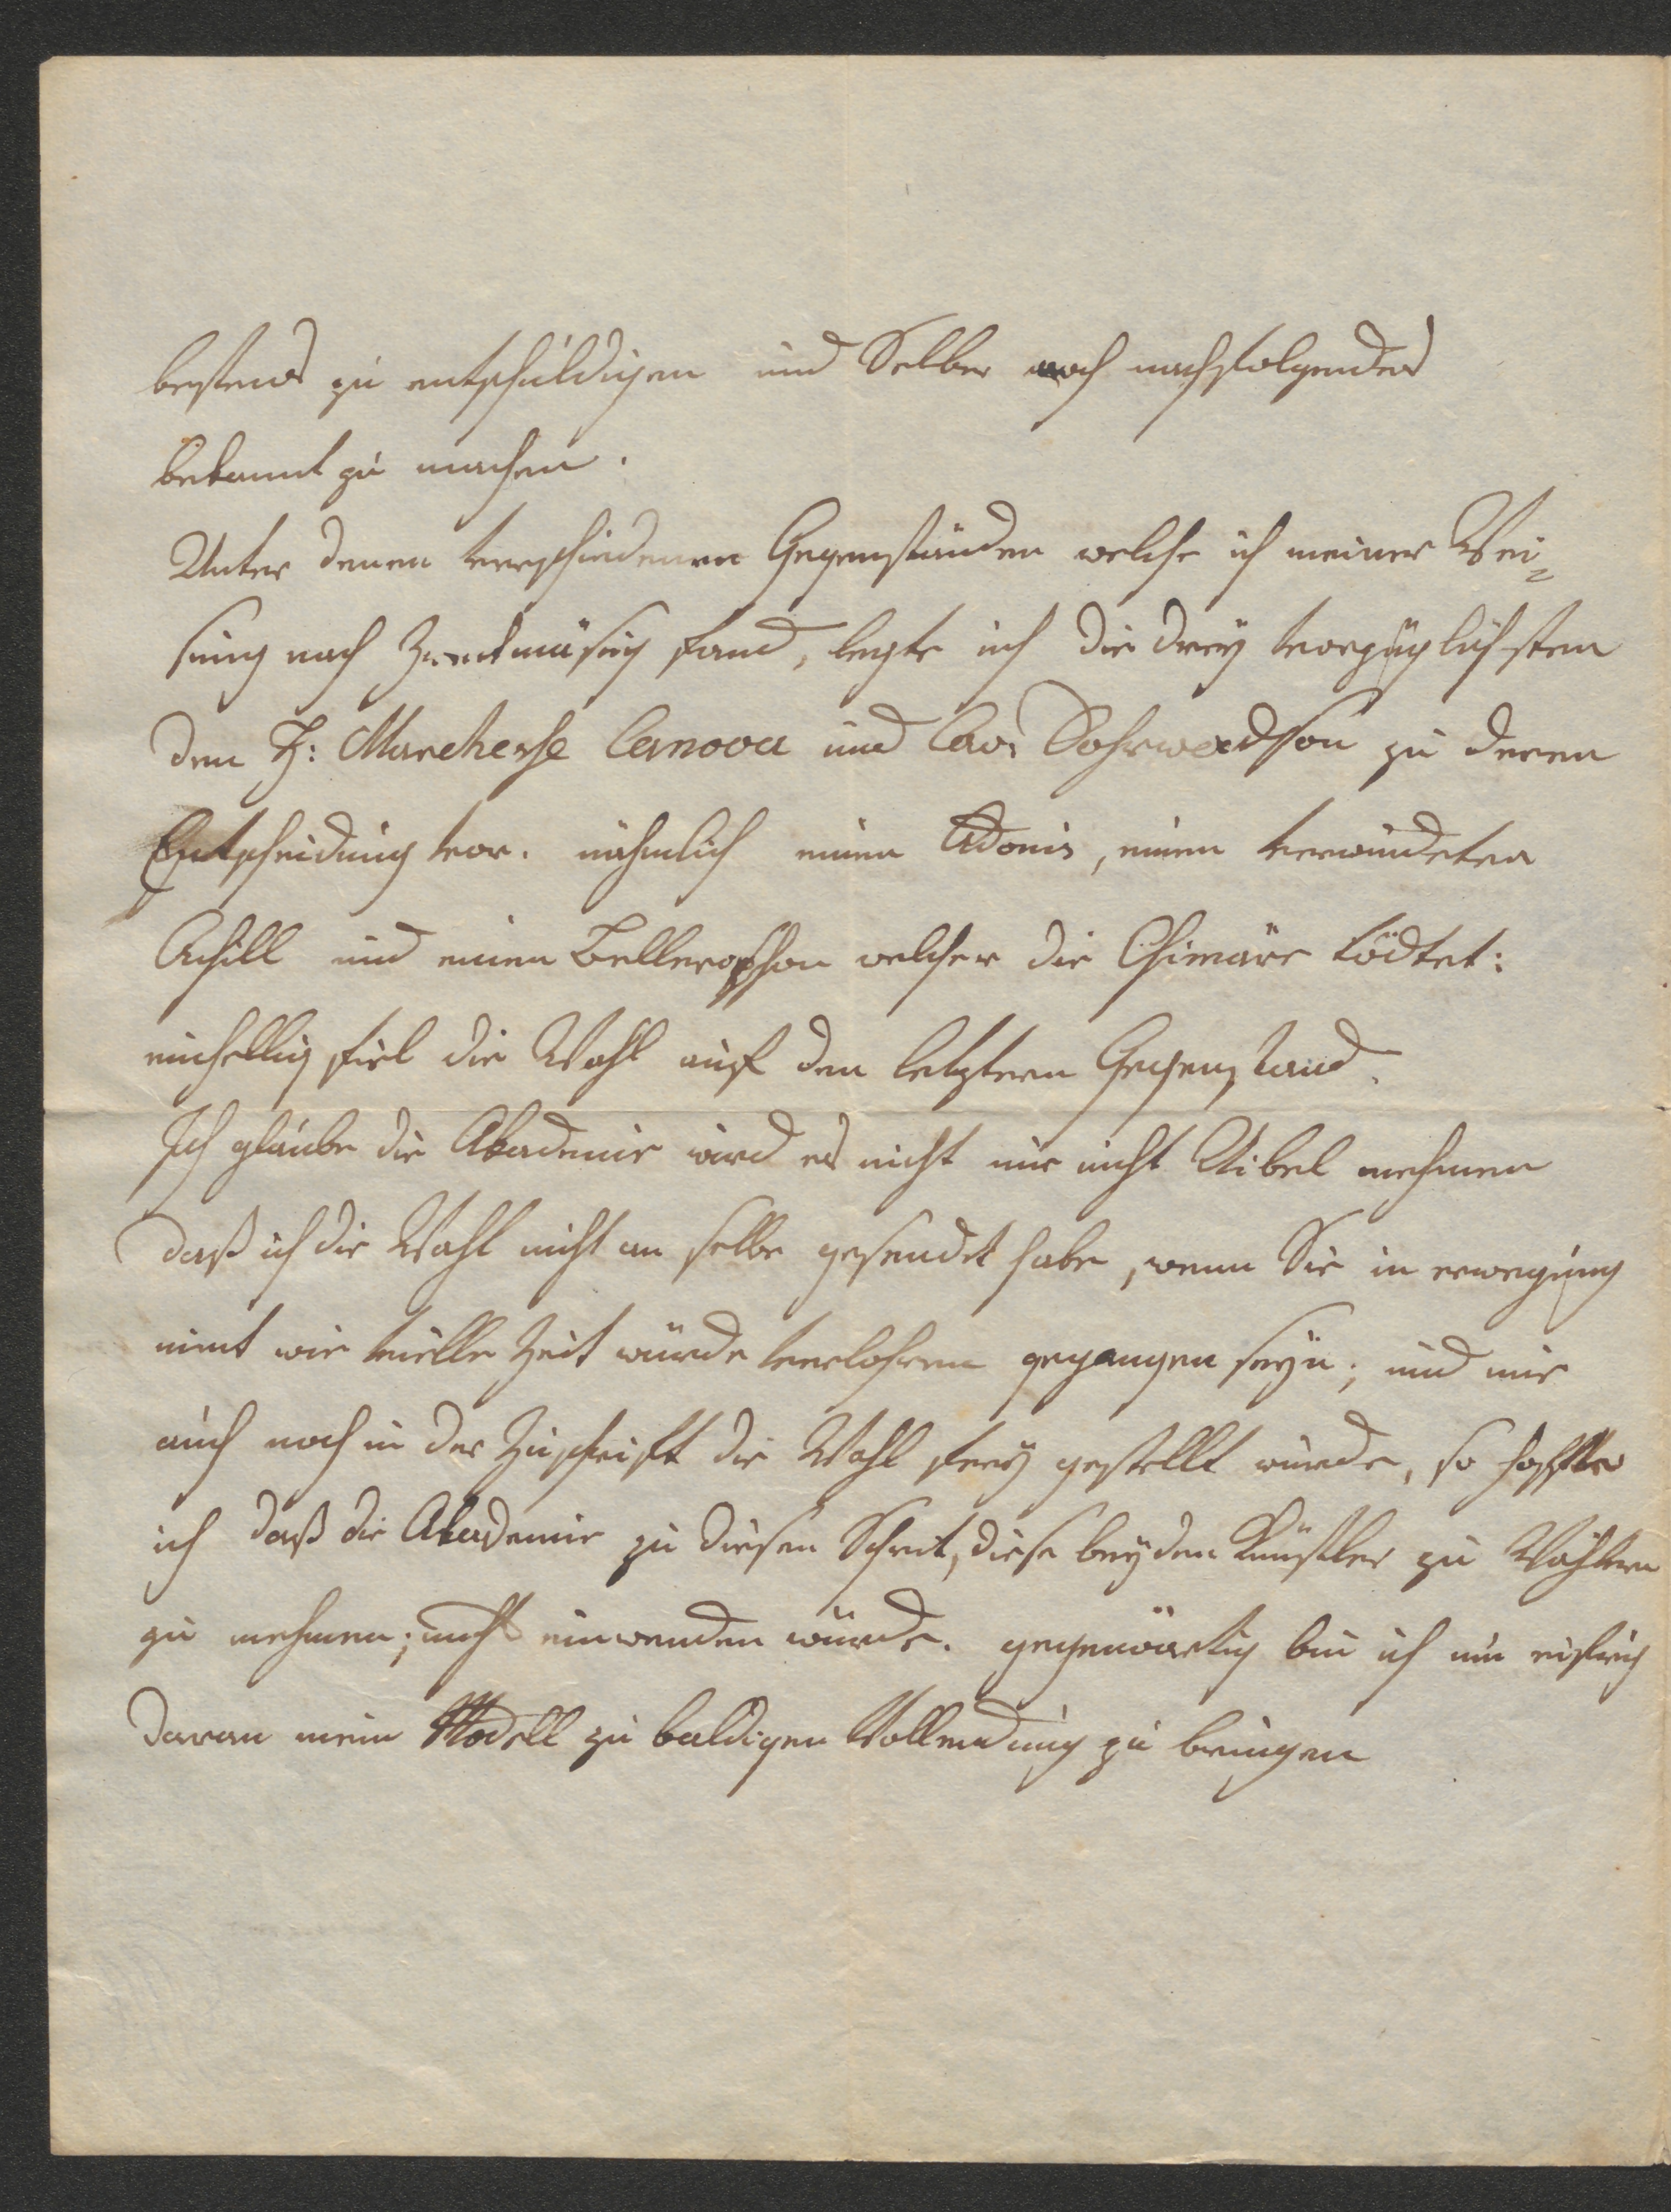 bestens zu entschuldigen und Selber noch nachfolgendes
bekannt zu machen.
Unter denen verschiedenen Gegenständen welche ich meiner Wei-
sung nach Zweckmäsig fand, legte ich die drey vorzüglichsten
den H: Marchese Canova und Cav: Dohrwaldson zu deren
Entscheidung vor. nähmlich einen Adonis, einen verwundeten
Achill und einen Bellerophon welcher die Chimäre tödtet:
einhellig fiel die Wahl auf den letztern Gegenstand.
Ich glaube die Akademie wird es nicht mir nicht Uibel nehmen
daß ich die Wahl nicht an selbe gesendet habe, wenn Sie in erwegung
nimt wie vielle Zeit würde verlohren gegangen seyn; und mir
auch noch in der Zuschrift die Wahl frey gestellt wurde, so hoffte
ich daß die Akademie zu diesen Schrit, diese beyden Künstler zu Wählern
zu nehmen; nichts einwenden würde. gegenwärtig bin ich nun eifrig
daran mein Modell zu baldigen Vollendung zu bringen